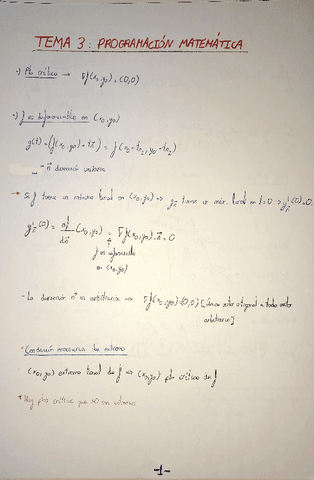 TEMA 3: PROGRAMACIÓN MATEMÁTICA
·) Pto crítico → ∇f(x₀,y₀) = (0,0)
·) f es diferenciable en (x₀,y₀)
g(t) = f((x₀,y₀)+t
) = f(x₀+t
, y₀+t
)
dirección unitaria
→ Si f tiene un máximo local en (x₀,y₀) ⇒ g
tiene un máx. local en t=0 ⇒ g'
(0)=0.
g'
(0) =
(x₀,y₀) = ∇f(x₀,y₀)·n⃗ = 0
f es diferenciable
en (x₀,y₀)
- La dirección n⃗ es arbitraria ⇒ ∇f(x₀,y₀) = (0,0) [Único vector ortogonal a todo vector
arbitrario]
* Condición necesaria de extremo
(x₀,y₀) extremo local de f ⇒ (x₀,y₀) pto crítico de f
* Hay ptos críticos que NO son extremos
-1-